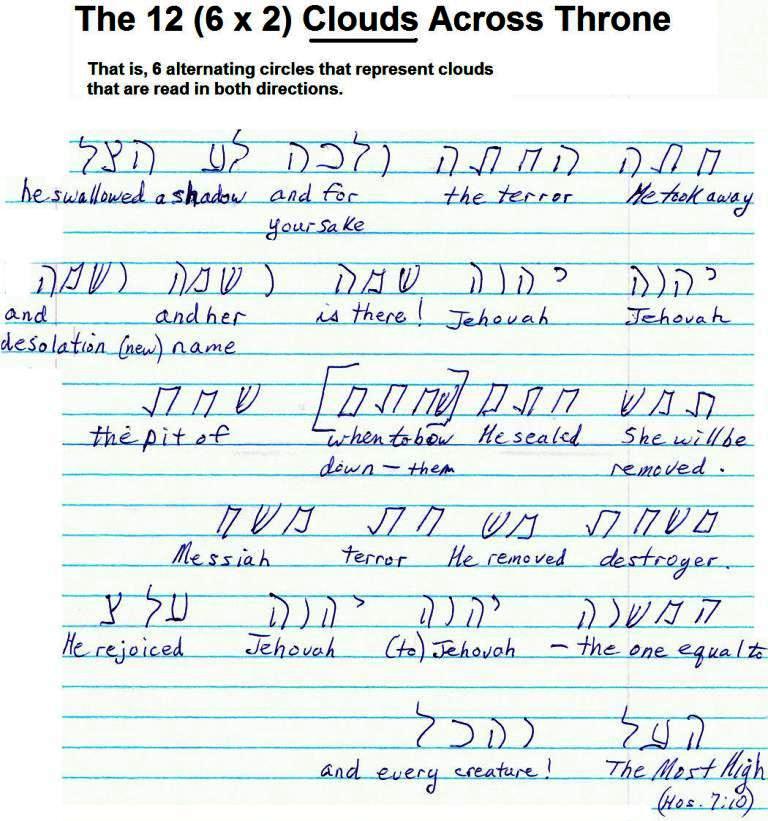 The 12 (6 x 2) Clouds Across Throne
That is, 6 alternating circles that represent clouds
that are read in both directions.
חתה החתה ולכה לע הצל
he swallowed a shadow and for the terror He took away
your sake
יהוה יהוה שמה ושמה ושמה
and and her is there! Jehovah Jehovah
desolation (new) name
תמש חתם [שחתם] שחת
the pit of when to bow He sealed She will be
down – them removed.
משחת מש חת משח
Messiah terror He removed destroyer.
המשוה יהוה יהוה עלצ
He rejoiced Jehovah (to) Jehovah – the one equal to
העל והכל
and every creature! The Most High
(Hos. 7:10)